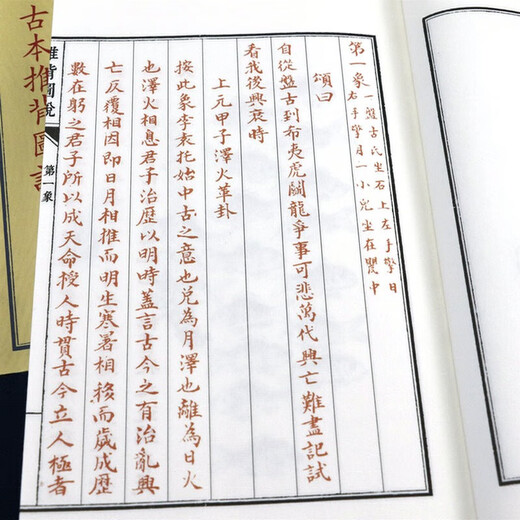 第一象 一盤古氏坐石上左手擎日
右手擎月一小兒坐在甖中
頌曰
自從盤古到希夷虎鬭龍爭事可悲萬代興亡難盡記試
看我後興衰時
上元甲子澤火革卦
按此象李袁托始中古之意也兌為月澤也離為日火
也澤火相息君子治歷以明時蓋言古今之有治亂興
亡反覆相因即日月相推而明生寒暑相移而歲成歷
數在躬之君子所以成天命授人時貫古今立人極者
推背圖說
第一象
古本推背圖說